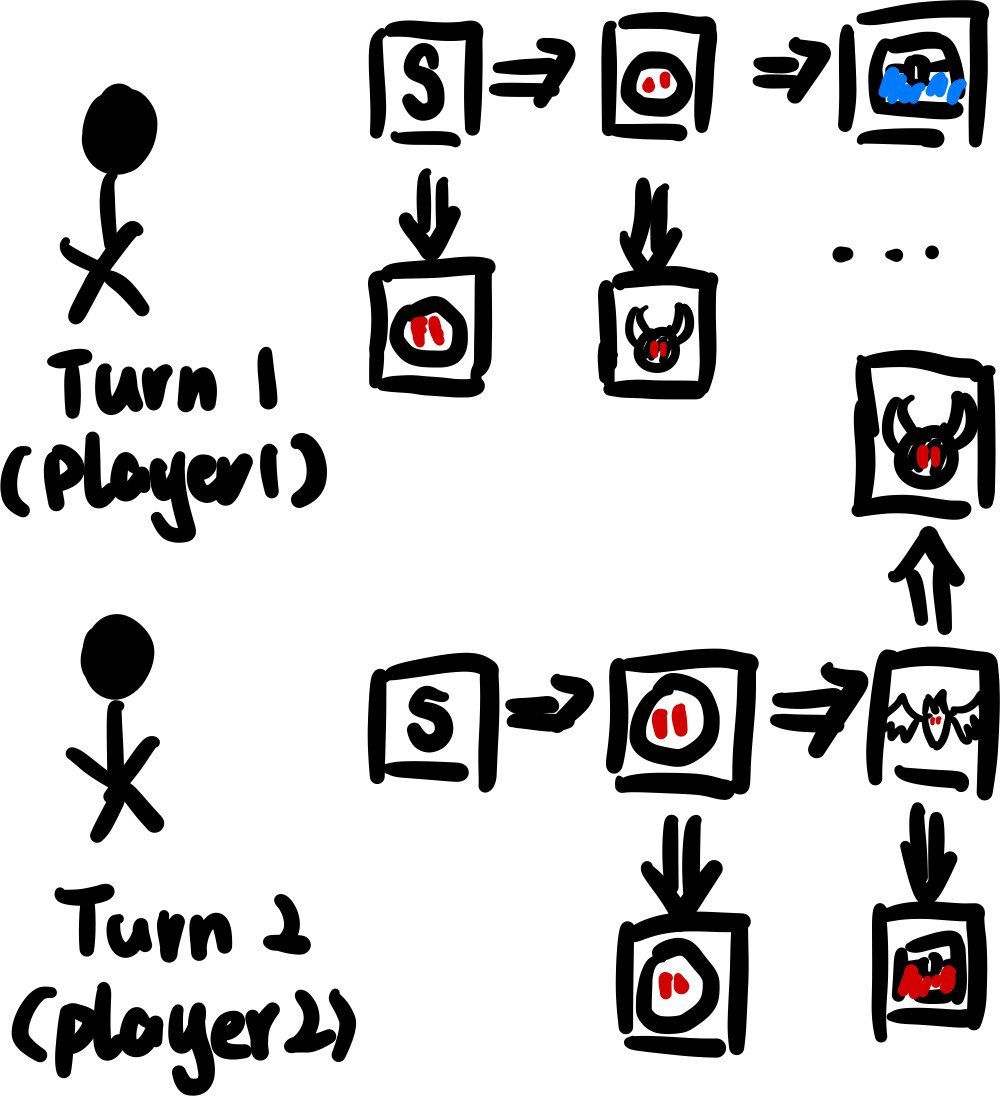 S
. . .
Turn 1
(player1)
S
Turn 2
(player2)